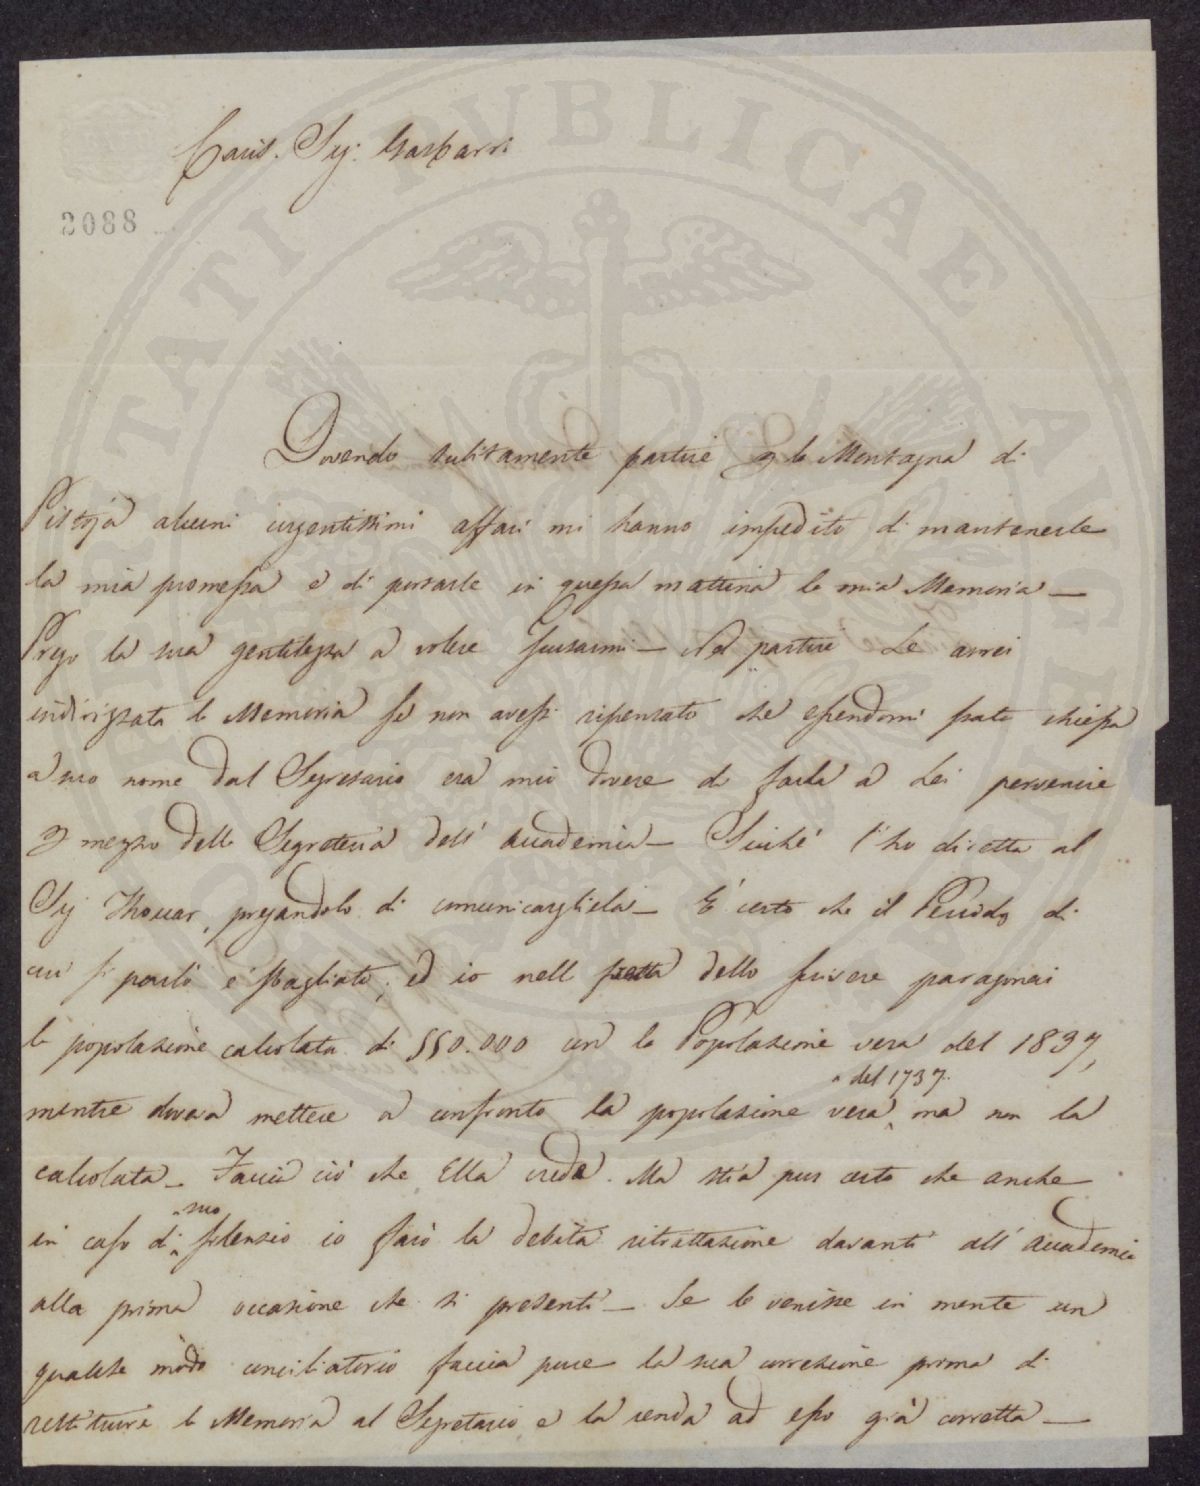 2088
Caris. Sig. Gasbarri
Dovendo subitamente partire p la Montagna di
Pistoja alcuni urgentissimi affari mi hanno impedito di mantenerle
la mia promessa e di portarle in questa mattina la mia Memoria —
Prego la sua gentilezza a volere scusarmi — Nel partire Le avrei
indirizzata la Memoria se non avessi ripensato che essendomi stata chiesta
a suo nome dal Segretario era mio dovere di farla a Lei pervenire
p mezzo della Segreteria dell' Accademia — Sicché l'ho diretta al
Sig Thouar, pregandolo di comunicargliela — È certo che il Periodo di
cui si parlò è sbagliato, ed io nell fretta dello scrivere paragonai
la popolazione calcolata di 550.000 con la Popolazione vera del 1837,
del 1737.
mentre doveva mettere a confronto la popolazione vera, ma non la
calcolata — Faccia ciò che Ella crede. Ma stia pur certo che anche
suo
in caso di silenzio io farò la debita ritrattazione davanti all' Accademia
alla prima occasione che si presenti — Se le venisse in mente un
qualche modo conciliatorio faccia pure la sua correzione prima di
restituire la Memoria al Segretario e la renda ad esso già corretta —
PUBLICAE